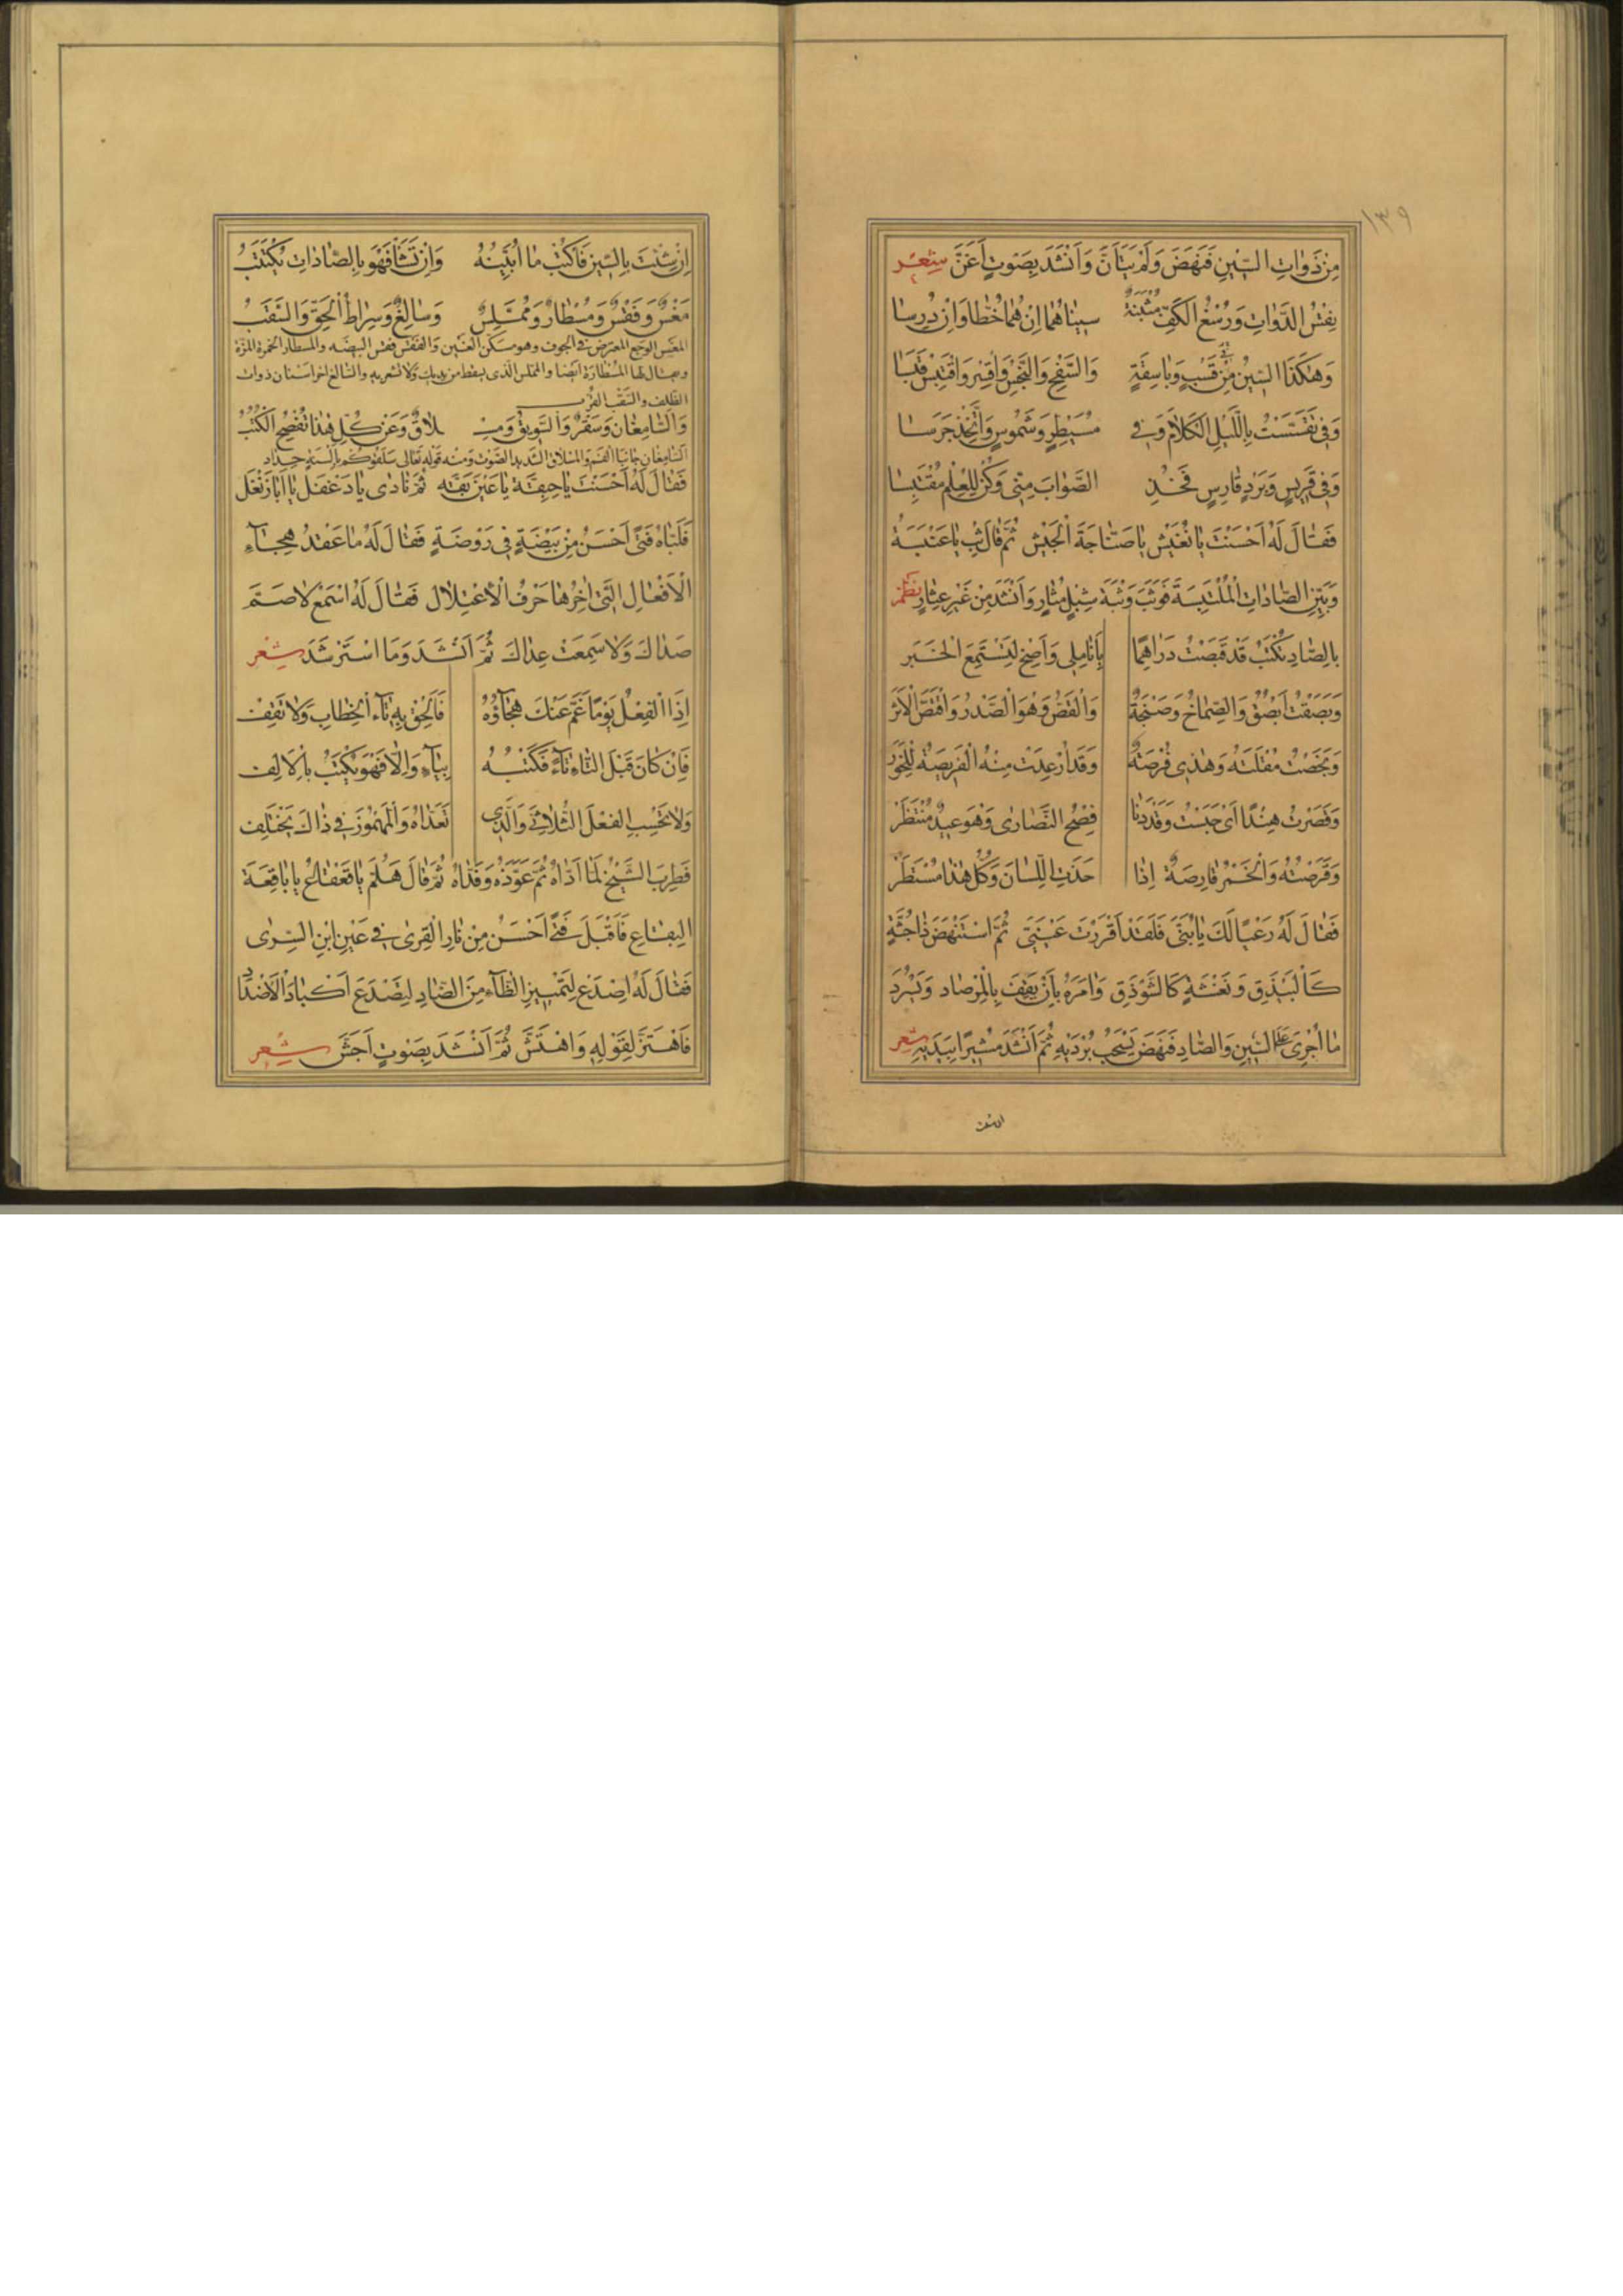 ١٣٩
مِنْ ذَوَاتِ السِّينِ فَنَهَضَ وَلَمْ يَتَأَنَّ وَأَنْشَدَ بِصَوْتٍ أَغَنَّ شِعْر
نِفْسُ الدَّوَاتِ وَرُسْغُ الْكَفِّ مُثْبَتَةٌ سِينَاهُمَا إِنْ هُمَا خُطَّا وَإِنْ دُرِسَا
وَهٰكَذَا السِّينُ فِي قَسْبٍ وَبَاسِقَةٍ وَالسَّفْحِ وَالْبَخْسِ وَاقْسِرْ وَاقْتَبِسْ قَبَسَا
وَفِي تَقَسَّسْتُ بِاللَّيْلِ الْكَلَامَ وَفِي مُسَيْطِرٍ وَشَمُوسٍ وَاتَّخِذْ جَرَسَا
وَفِي قَرِيسٍ وَبَرْدٍ قَارِسٍ فَخُذِ الصَّوَابَ مِنِّي وَكُنْ لِلْعِلْمِ مُقْتَبِسَا
فَقَالَ لَهُ أَحْسَنْتَ يَا نُغَيْشُ يَا صَنَّاجَةَ الْجَيْشِ ثُمَّ قَالَ ثِبْ يَا عَنْبَسَةُ
وَبَيِّنِ الصَّادَاتِ الْمُلْتَبِسَةَ فَوَثَبَ وَثْبَةَ شِبْلٍ مُثَارٍ وَأَنْشَدَ مِنْ غَيْرِ عِثَارٍ نظم
بِالصَّادِ يُكْتَبُ قَدْ قَبَصْتُ دَرَاهِمًا بِأَنَامِلِي وَأَصِخْ لِتَسْتَمِعَ الْخَبَر
وَبَصَقْتُ أَبْصُقُ وَالصِّمَاخُ وَصَنْجَةٌ وَالْقَصُّ وَهْوَ الصَّدْرُ وَاقْتَصَّ الْأَثَرْ
وَبَخَصْتُ مُقْلَتَهُ وَهٰذِي فُرْصَةٌ وَقَدْ أُرْعِدَتْ مِنْهُ الْفَرِيصَةُ لِلْخَوَرْ
وَقَصَرْتُ هِنْدًا أَيْ حَبَسْتُ وَقَدْ دَنَا فِصْحُ النَّصَارَى وَهْوَ عِيدٌ مُنْتَظَرْ
وَقَرَصْتُهُ وَالْخَمْرُ قَارِصَةٌ إِذَا حَذَتِ اللِّسَانَ وَكُلُّ هٰذَا مُسْتَطَرْ
فَقَالَ لَهُ رَعْيًا لَكَ يَا بُنَيَّ فَلَقَدْ أَقْرَرْتَ عَيْنَيَّ ثُمَّ اسْتَنْهَضَ ذَا جُثَّةٍ
كَالْبَيْذَقِ وَنَعْشَةٍ كَالشَّوْذَقِ وَأَمَرَهُ بِأَنْ يَقِفَ بِالْمِرْصَادِ وَيَسْرُدَ
مَا أُجْرِيَ عَلَى السِّينِ وَالصَّادِ فَنَهَضَ يَسْحَبُ بُرْدَيْهِ ثُمَّ أَنْشَدَ مُشِيرًا بِيَدَيْهِ شِعر
إِنْ شِئْتَ بِالسِّينِ فَاكْتُبْ مَا أُبَيِّنُهُ وَإِنْ تَشَأْ فَهْوَ بِالصَّادَاتِ يُكْتَتَبُ
مَغْسٌ وَفَقْسٌ وَمُسْطَارٌ وَمُمَّلِسٌ وَسَالِغٌ وَسِرَاطُ الْحَقِّ وَالسَّقَبُ
المغس الوجع المعترض في الجوف وهو مسكن الغين والفقس فقس البيضه والمسطار الخمرة المزة
ويقال لها المسطارة ايضا والمملس الذى يسقط من يديك ولا تشعر به والسالغ اخر اسنان ذوات
الظلف والسقب القرب
وَالسَّامِغَانِ وَسَقْرٌ وَالسَّوِيقُ وَمِسْلَاقٌ وَعَنْ كُلِّ هٰذَا تُفْصِحُ الْكُتُبُ
السامغان جانبا الفم والمسلاق الشديد الصوت ومنه قوله تعالى سلقوكم بالسنة حداد
فَقَالَ لَهُ أَحْسَنْتَ يَا حِبِقَّةُ يَا عَيْنَ بَقَّه ثُمَّ نَادَى يَا دَغْفَلُ يَا أَبَا زَنْفَلَ
فَلَبَّاهُ فَتًى أَحْسَنُ مِنْ بَيْضَةٍ فِي رَوْضَةٍ فَقَالَ لَهُ مَا عَقْدُ هِجَاءِ
الْأَفْعَالِ الَّتِي آخِرُهَا حَرْفُ الْاعْتِلَالِ فَقَالَ لَهُ اسْمَعْ لَا صَمَّ
صَدَاكَ وَلَا سَمِعَتْ عِدَاكَ ثُمَّ أَنْشَدَ وَمَا اسْتَرْشَدَ شِعْر
إِذَا الْفِعْلُ يَوْمًا غُمَّ عَنْكَ هِجَاؤُهُ فَأَلْحِقْ بِهِ تَاءَ الْخِطَابِ وَلَا تَقِفْ
فَإِنْ كَانَ قَبْلَ التَّاءِ يَاءً فَكَتْبُهُ بِيَاءٍ وَإِلَّا فَهْوَ يُكْتَبُ بِالْأَلِفْ
وَلَا تَحْسِبِ الْفِعْلَ الثُّلَاثِيَّ وَالَّذِي تَعَدَّاهُ وَالْمَهْمُوزَ فِي ذَاكَ يَخْتَلِفْ
فَطَرِبَ الشَّيْخُ لَمَّا أَدَّاهُ ثُمَّ عَوَّذَهُ وَفَدَّاهُ ثُمَّ قَالَ هَلُمَّ يَا قَعْقَاعُ يَا بَاقِعَةَ
الْبِقَاعِ فَأَقْبَلَ فَتًى أَحْسَنُ مِنْ نَارِ الْقِرَى فِي عَيْنِ ابْنِ السُّرَى
فَقَالَ لَهُ اصْدَعْ لِتَمْيِيزِ الظَّاءِ مِنَ الضَّادِ لِتَصْدَعَ أَكْبَادَ الْأَضْدَادِ
فَاهْتَزَّ لِقَوْلِهِ وَاهْتَشَّ ثُمَّ أَنْشَدَ بِصَوْتٍ أَجَشَّ شِعر